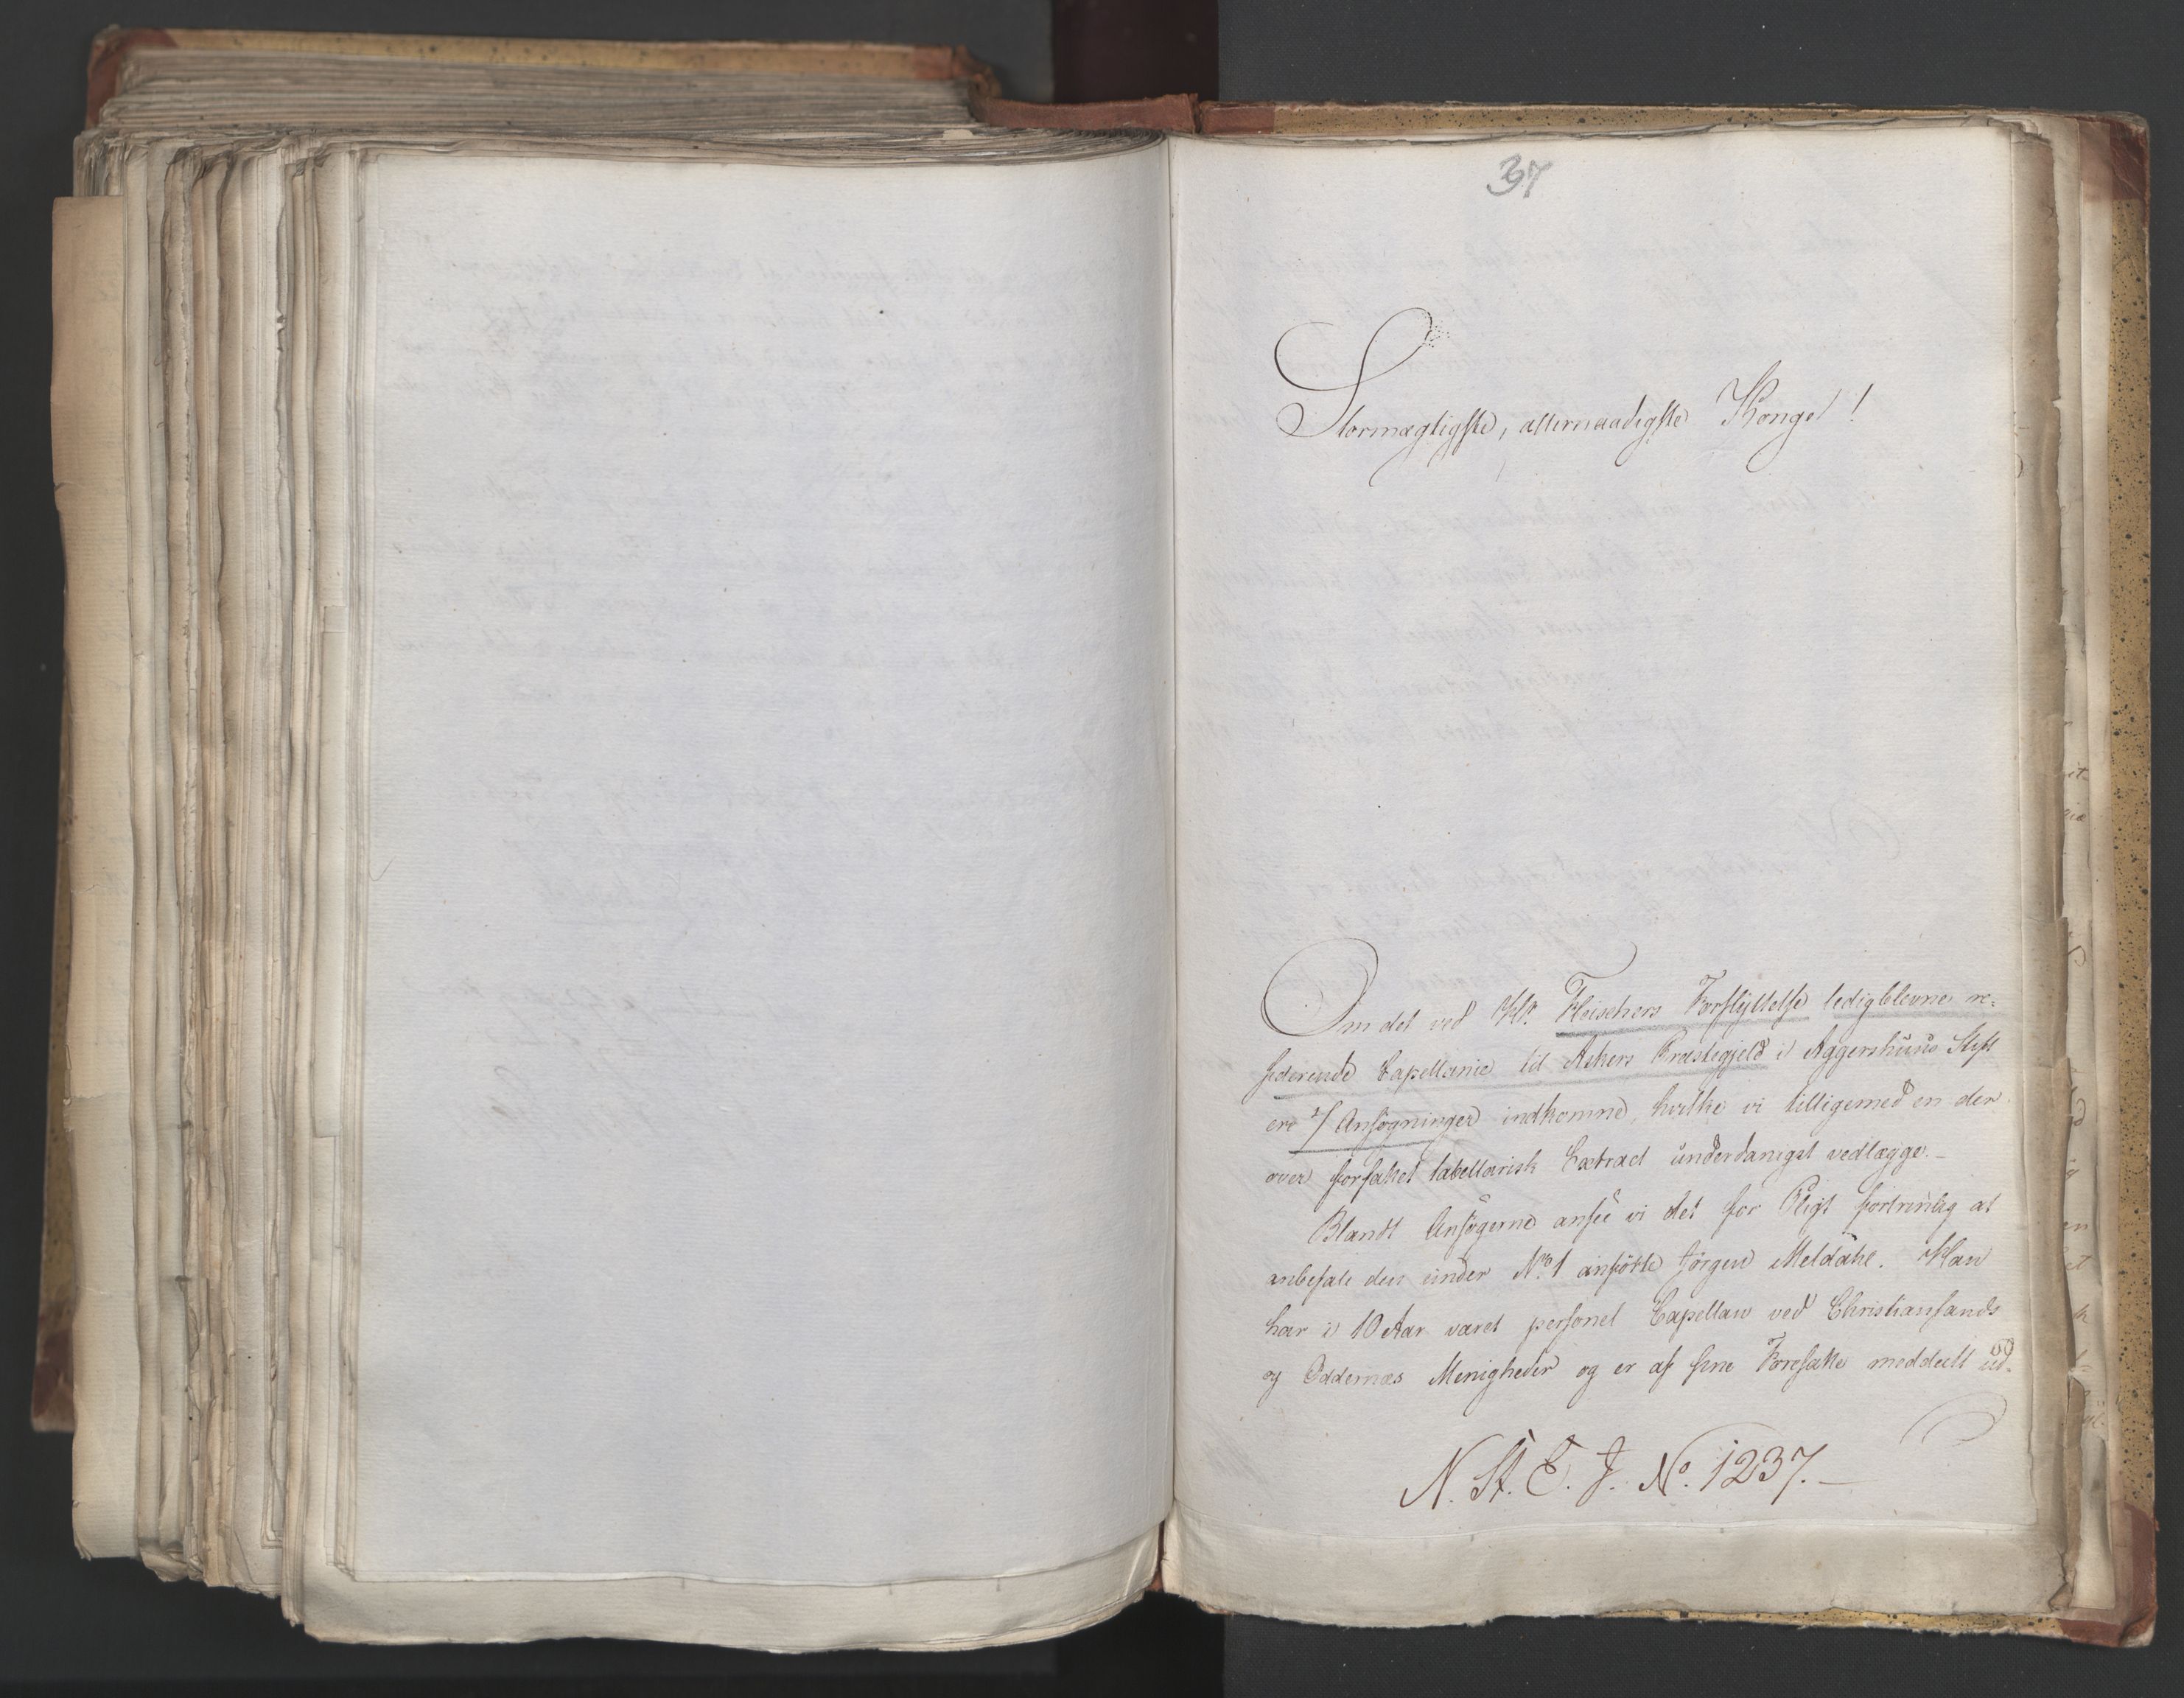 37
Stormægtigste, allernaadigste Konge!
Om det ved Hr. Fleischers Forflyttelse ledigblevne re-
siderende Capellanie til Askers Præstegjeld i Aggershuus Stift
ere 7 Ansøgninger indkomne, hvilke vi tilligemed en der-
over forfattet tabellarisk Extract underdanigst vedlægge.-
Blandt Ansøgerne ansee vi det for Pligt fortrinlig at
anbefale den under No. 1 anførte Jørgen Meldahl. Han
har i 10 Aar været personel Capellan ved Christiansands
og Oddernæs Menigheder og er af sine Foresatte meddeelt ud-
N. St. E. J. No. 1237.-